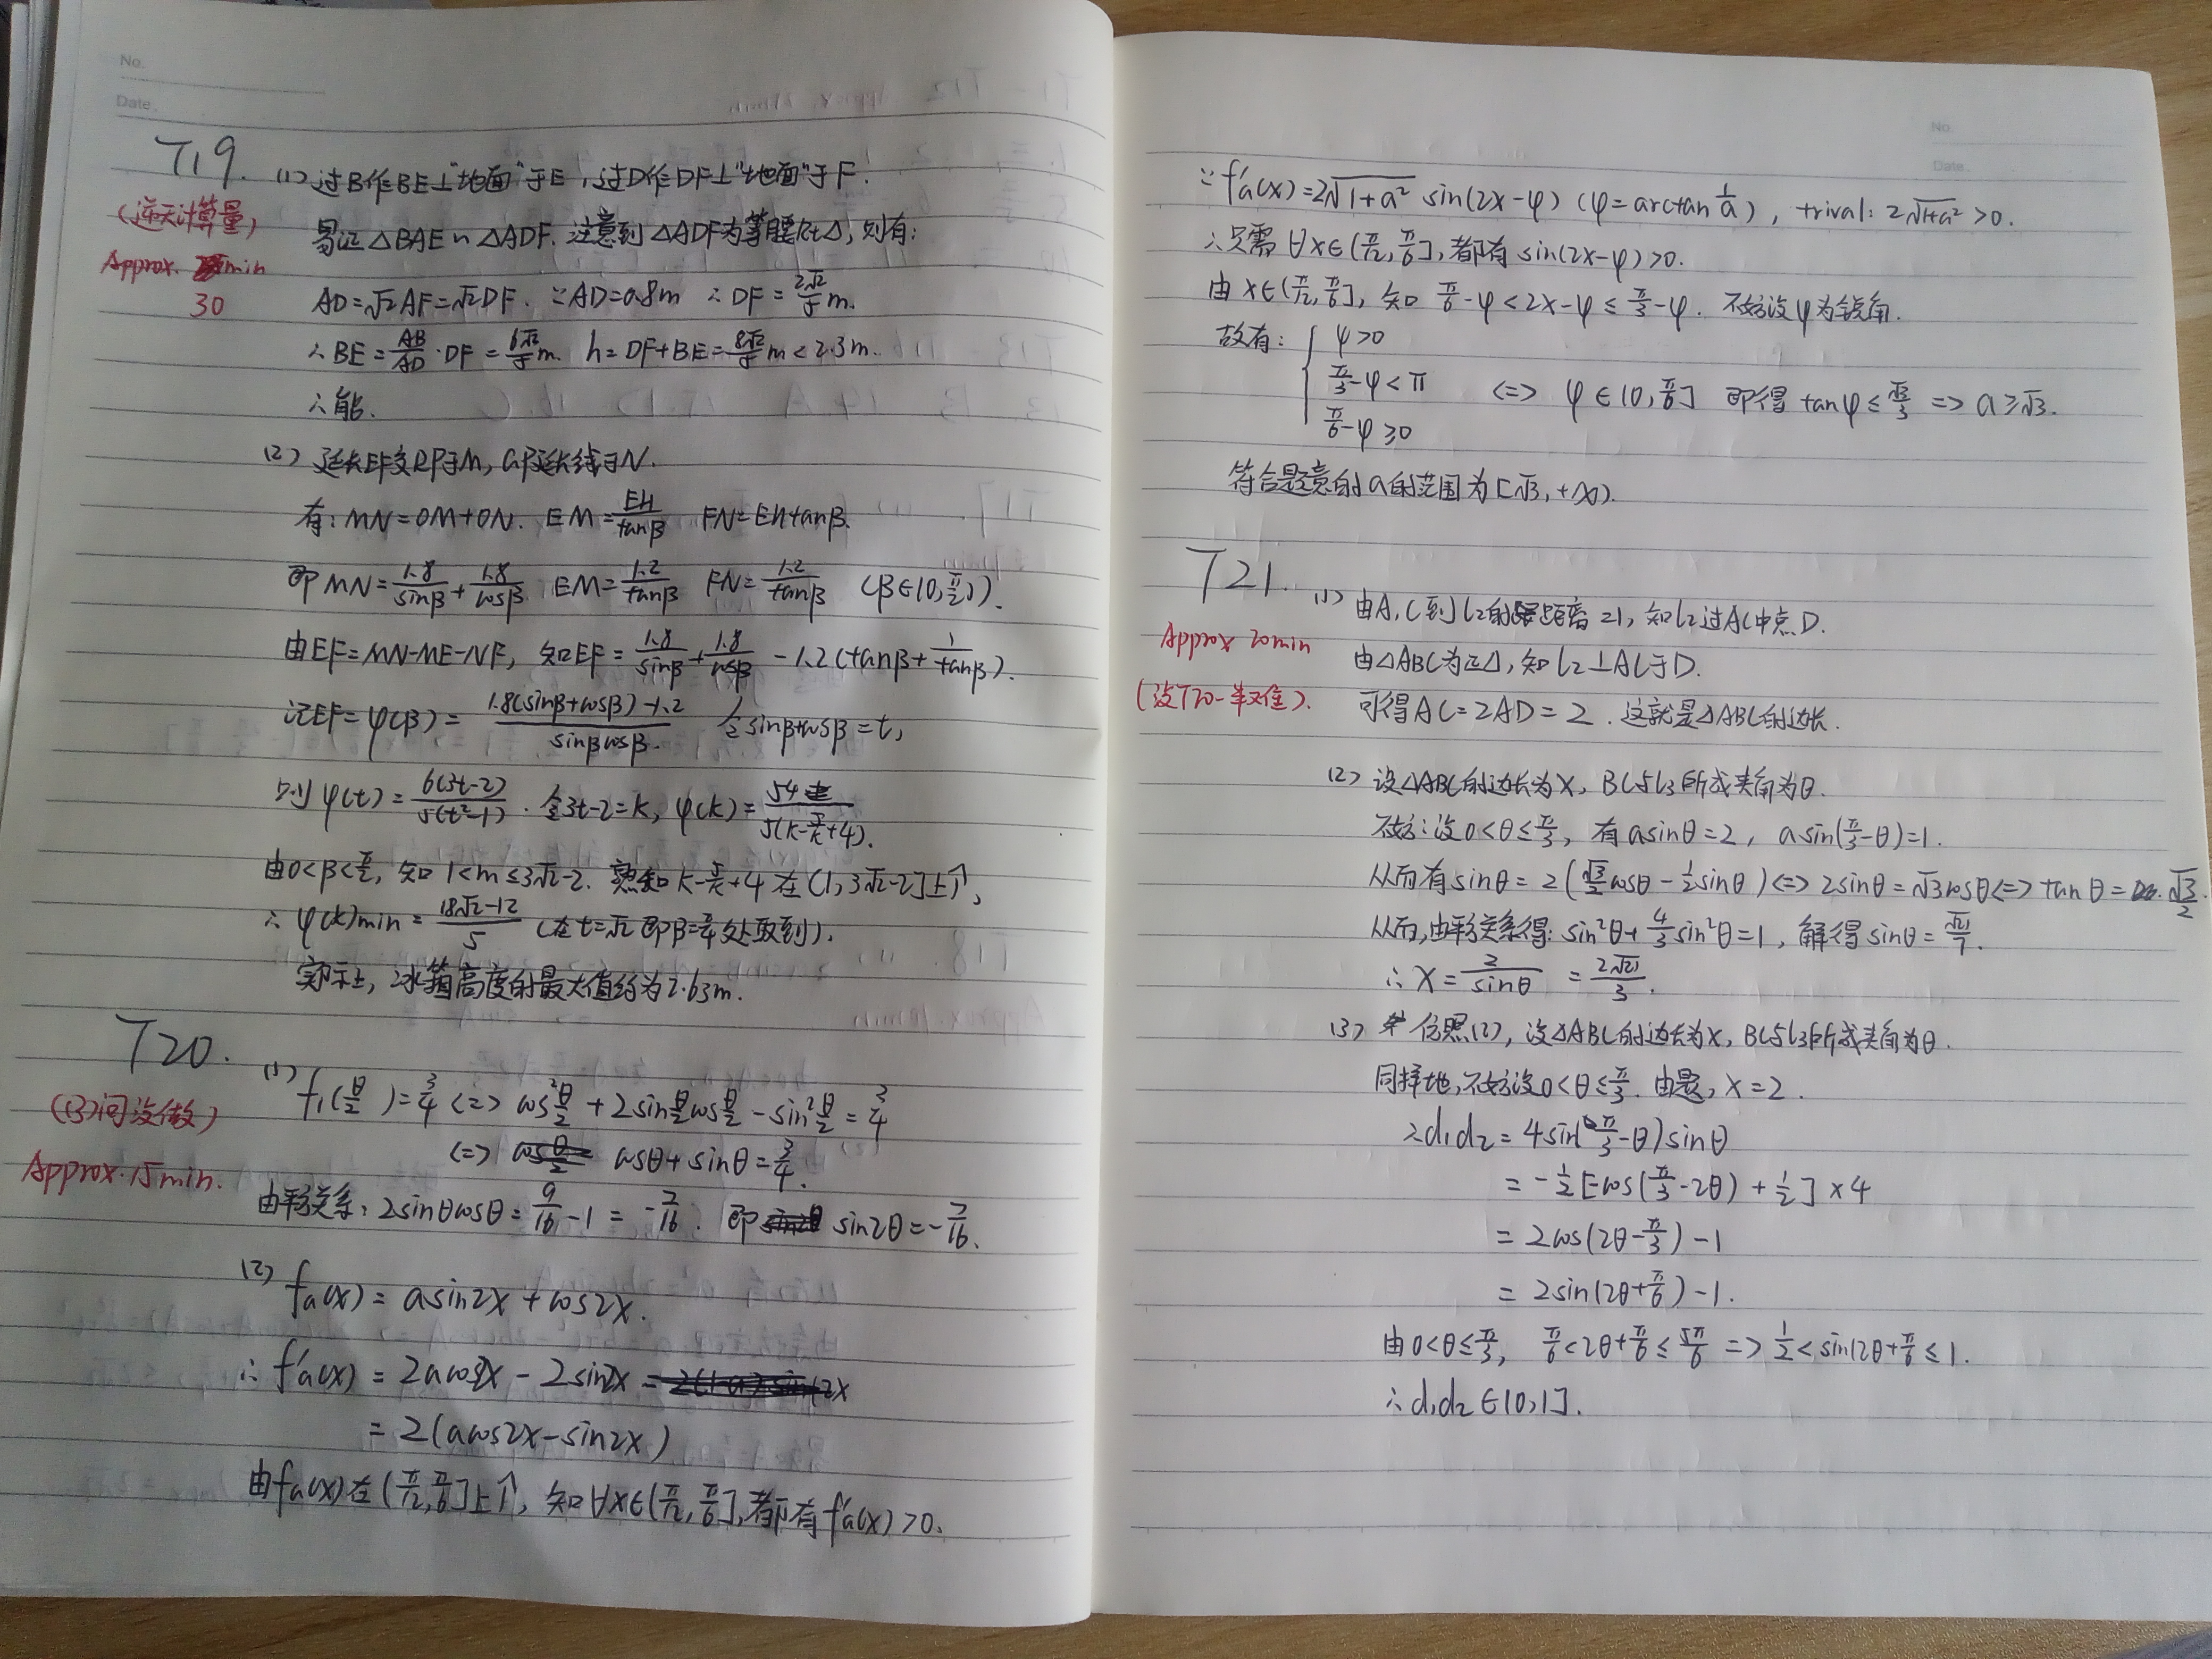 No.
Date.
T19. (1) 过B作BE⊥"地面"于E,过D作DF⊥"地面"于F.
(逆天计算量)
易证△BAE∽△ADF. 注意到△ADF为等腰Rt△,则有:
Approx. min
30
AD=√2AF=√2DF. ∵AD=0.8m ∴DF=2√2/5 m.
∴BE=AB/AD·DF=6√2/5 m. h=DF+BE=8√2/5 m<2.3m.
∴能.
(2) 延长EF交RP于M, QP延长线于N.
有: MN=OM+ON. EM=EH/tanβ FN=EHtanβ.
即MN=1.8/sinβ+1.8/cosβ EM=1.2/tanβ FN=1.2/tanβ (β∈(0,π/2)).
由EF=MN-ME-NF, 知EF=1.8/sinβ+1.8/cosβ-1.2(tanβ+1/tanβ).
记EF=φ(β)=1.8(sinβ+cosβ)-1.2/sinβcosβ. 令sinβ+cosβ=t,
则φ(t)=6(3t-2)/5(t²-1). 令3t-2=k, φ(k)=54/5(k-5/k+4).
由0<β<π/2, 知1<m≤3√2-2. 熟知k-5/k+4在(1,3√2-2]上↑,
∴φ(k)min=18√2-12/5 (在t=√2即β=π/4处取到).
实际上,冰箱高度的最大值约为2.63m.
T20. (1) f₁(θ/2)=3/4 <=> cos²θ/2+2sinθ/2cosθ/2-sin²θ/2=3/4
((3)问没做)
<=> cosθ+sinθ=3/4.
Approx. 15min.
由平方关系: 2sinθcosθ=9/16-1=-7/16. 即 sin2θ=-7/16.
(2) fa(x)=asin2x+cos2x.
∴f'a(x)=2acos2x-2sin2x
=2(acos2x-sin2x)
由fa(x)在(π/12,π/6]上↑, 知∀x∈(π/12,π/6],都有f'a(x)>0.
No.
Date.
∵f'a(x)=2√1+a² sin(2x-φ) (φ=arctan 1/a), trival: 2√1+a²>0.
∴只需∀x∈(π/12,π/6],都有sin(2x-φ)>0.
由x∈(π/12,π/6], 知π/6-φ<2x-φ≤π/3-φ. 不妨设φ为锐角.
故有: { φ>0
π/3-φ<π <=> φ∈(0,π/6] 即得tanφ≤√3/3 => a≥√3.
π/6-φ≥0
符合题意的a的范围为[√3,+∞).
T21. (1) 由A,C到l₂的距离=1, 知l₂过AC中点D.
Approx 20min
由△ABC为正△, 知l₂⊥AC于D.
(没T20一半难).
可得AC=2AD=2. 这就是△ABC的边长.
(2) 设△ABC的边长为x, BC与l₃所成夹角为θ.
不妨:设0<θ≤π/3, 有asinθ=2, asin(π/3-θ)=1.
从而有sinθ=2(√3/2cosθ-1/2sinθ)<=>2sinθ=√3cosθ<=>tanθ=√3/2
从而,由平方关系得: sin²θ+4/3sin²θ=1, 解得sinθ=√21/7.
∴x=2/sinθ=2√21/3.
(3) 仿照(2), 设△ABC的边长为x, BC与l₃所成夹角为θ.
同样地,不妨设0<θ≤π/3. 由题, x=2.
∴d₁d₂=4sin(π/3-θ)sinθ
=-1/2[-cos(π/3-2θ)+1/2]×4
=2cos(2θ-π/3)-1
=2sin(2θ+π/6)-1.
由0<θ≤π/3, π/6<2θ+π/6≤5π/6 => 1/2<sin(2θ+π/6≤1.
∴d₁d₂∈(0,1].